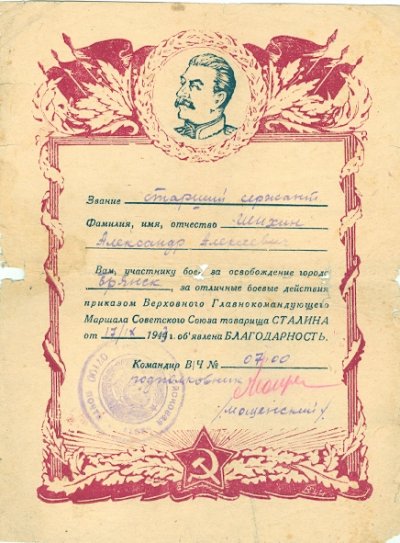 Звание старший сержант
Фамилия, имя, отчество Шихин
Александр Алексеевич
Вам, участнику боев за освобождение города
Брянск, за отличные боевые действия
приказом Верховного Главнокомандующего
Маршала Советского Союза товарища СТАЛИНА
от 17/IX 1943г. об'явлена БЛАГОДАРНОСТЬ.
Командир В/Ч № 0700
подполковник
/Мощенский/